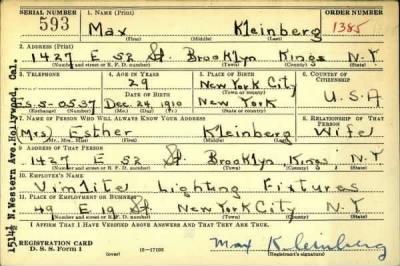 SERIAL NUMBER 1. NAME (Print) ORDER NUMBER
593 Max Kleinberg 1385
(First) (Middle) (Last)
2. ADDRESS (Print)
1427 E 52 St. Brooklyn Kings N.Y
(Number and street or R. F. D. number) (Town) (County) (State)
3. TELEPHONE 4. AGE IN YEARS 5. PLACE OF BIRTH 6. COUNTRY OF CITIZENSHIP
29 New York City
DATE OF BIRTH (Town or county)
Es. 5-0537 Dec. 24, 1910 New York U.S.A
(Exchange) (Number) (Mo.) (Day) (Yr.) (State or country)
7. NAME OF PERSON WHO WILL ALWAYS KNOW YOUR ADDRESS 8. RELATIONSHIP OF THAT PERSON
(Mrs) Esther Kleinberg Wife
(Mr., Mrs., Miss) (First) (Middle) (Last)
9. ADDRESS OF THAT PERSON
1427 E 52 St. Brooklyn Kings N.Y
(Number and street or R. F. D. number) (Town) (County) (State)
10. EMPLOYER'S NAME
Vimlite Lighting Fixtures
11. PLACE OF EMPLOYMENT OR BUSINESS
49 E 19 St New York City N.Y
(Number and street or R. F. D. number) (Town) (County) (State)
I AFFIRM THAT I HAVE VERIFIED ABOVE ANSWERS AND THAT THEY ARE TRUE.
REGISTRATION CARD
D. S. S. FORM 1 (over) 16-17105 Max Kleinberg
(Registrant's signature)
1514½ N. Western Ave. Hollywood, Cal.